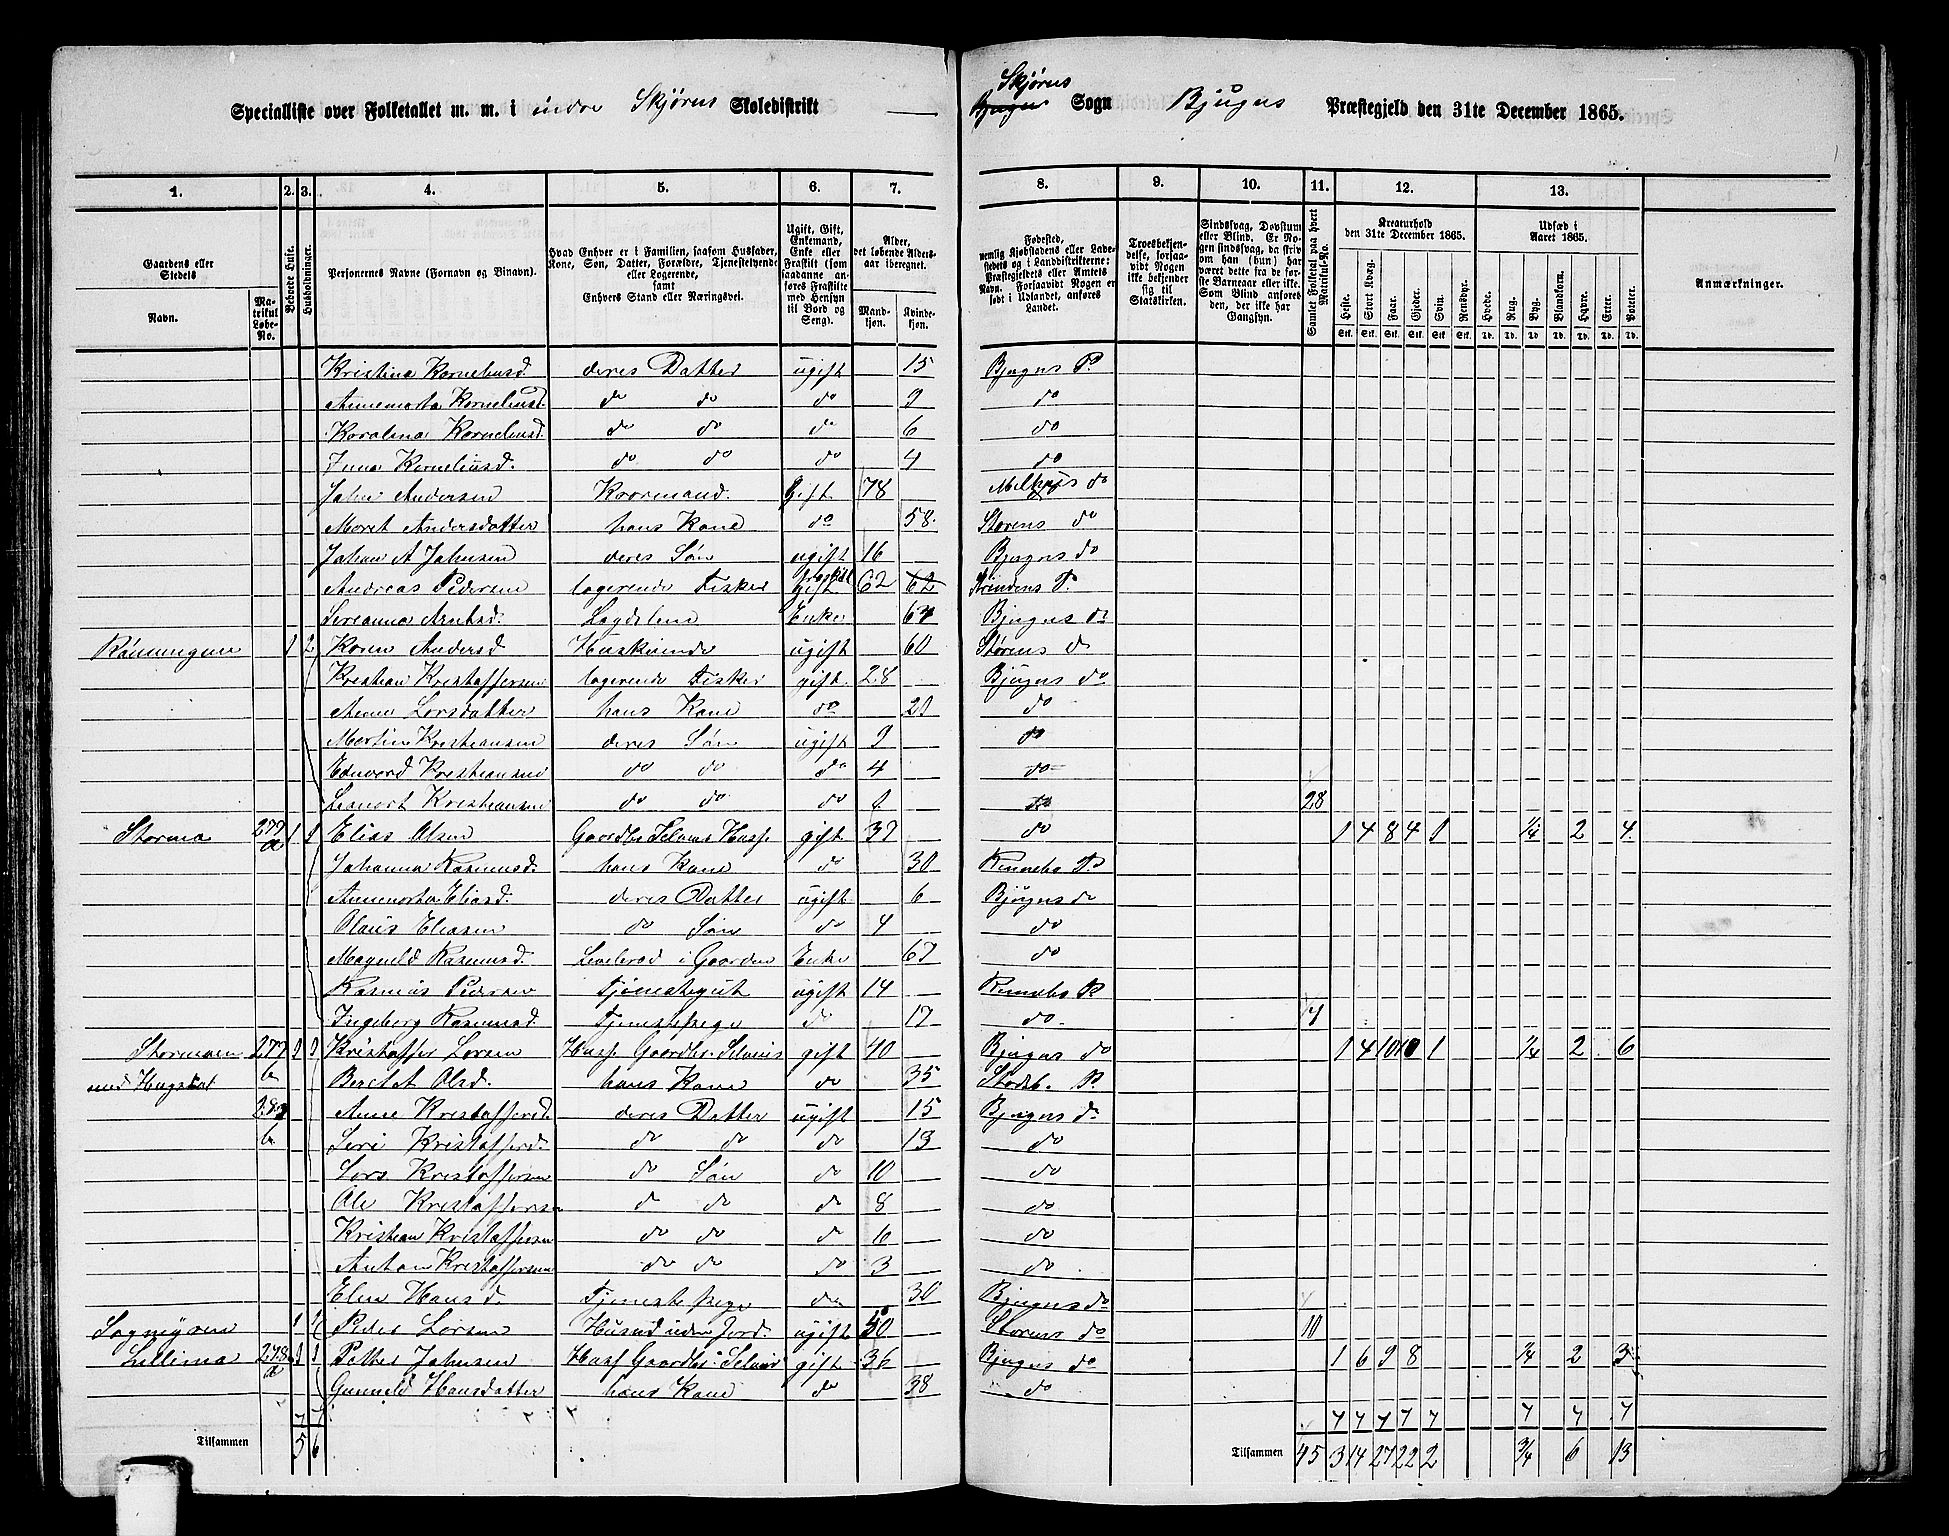 Specialliste over Folketallet m. m. i indre Skjørns Skoledistrikt
Skjørns
Bjugns Sogn Bjugns Præstegjeld den 31te December 1865.
1. 2. 3. 4. 5. 6. 7. 8. 9. 10. 11. 12. 13.
Gaardens eller Stedets
Navn.
Matrikul Løbe-No.
Beboede Huse.
Husholdninger.
Personernes Navne (Fornavn og Binavn).
Hvad Enhver er i Familien, saasom Husfader, Kone, Søn, Datter, Forældre, Tjenestetyende eller Logerende, samt Enhvers Stand eller Næringsvei.
Ugift, Gift, Enkemand, Enke eller Fraskilt (saadanne anføres Fraskilte med Hensyn til Bord og Seng).
Alder, det løbende Aldersaar iberegnet.
Mandkjøn. Kvindekjøn.
Fødested, nemlig Kjøbstadens eller Ladestedets og i Landdistrikterne: Præstegjeldets eller Amtets Navn. Forsaavidt Nogen er født i Udlandet, anføres Landet.
Troesbekjendelse, forsaavidt Nogen ikke bekjender sig til Statskirken.
Sindssvag, Døvstum eller Blind. Er Nogen sindssvag, da skrives om han (hun) har været dette fra de første Barneaar eller ikke. Som Blind anføres den, der ikke har Gangsyn.
Samlet Folketal paa hvert Matrikul-No.
Kreaturhold den 31te December 1865.
Heste. Stort Kvæg. Faar. Gjeder. Svin. Rensdyr.
Udsæd i Aaret 1865.
Hvede. Rug. Byg. Blandkorn. Havre. Erter. Poteter.
Anmærkninger.
Kristina Korneliusd. deres Datter ugift 15 Bjugns P.
Annemarta Korneliusd. do do do 9 do
Karolina Korneliusd. do do do 6 do
Inna Korneliusd. do do do 4 do
John Andersen Kaarmand. Gift 78 Melhus do
Maret Andersdatter hans Kone do 58. Størens do
Johan A Johnsen deres Søn ugift 16 Bjugns do
Andreas Pedersen logerende Fisker fraskilt gift 62 62 Strindens P.
Serianna Arntsd. Lægdslem Enke 64 Bjugns do
1 2 Karen Andersd Huskvinde ugift 60 Størens do
Kristian Kristoffersen logerende Fisker gift. 28 Bjugns do
Anne Larsdatter hans Kone do 29 do
Martin Kristiansen deres Søn ugift 9 do
Edvard Kristiansen do do do 4 do
Leonart Kristiansen do do do 1 do 28
Storma 277 a 1 1 Elias Olsen Gaardbr. Selveier Husf. gift 37 do 1 4 8 4 1 1/4 2 4.
Johanna Rasmusd. hans Kone do 30 Rennebo P.
Annemarta Eliasd. deres Datter ugift 6 Bjugns do
Olaus Eliasen do Søn do 4 do
Magnild Rasmusd. Levebrød i Gaarden Enke 67 do
Rasmus Pedersen Tjenestegut ugift 14 Rennebo P.
Ingeborg Rasmusd. Tjenestepige do 17 do 7
Stormoen 277 b 1 1 Kristoffer Larsen Husf. Gaardbr. Selveier gift 40 Bjugns do 1 4 10 10 1 1/4 2 6
med Hugstal Beret Olsd. hans Kone do 35 Stodsb. P.
b Anne Kristofferd. deres Datter ugift 15 Bjugns do
Seri Kristofferd. do do do 13 do
Lars Kristoffersen do Søn do 10 do
Ole Kristoffersen do do do 8 do
Kristian Kristoffersen do do do 6 do
Anton Kristoffersen do do do 3 do
Elen Hansd. Tjenestepige do 30 Bjugns do
Sagmyren 1 1 Peder Larsen Husmd uden Jord. ugift 50 Størens do 10
Litlima 278 a 1 1 Petter Johnsen Husf Gaardbr. Selveier gift 36 Bjugns do 1 6 9 8 1/4 2 3
Gunnild Hansdatter hans Kone do 38 do
Tilsammen 5 6
Tilsammen 45 3 14 27 22 2 3/4 6 13